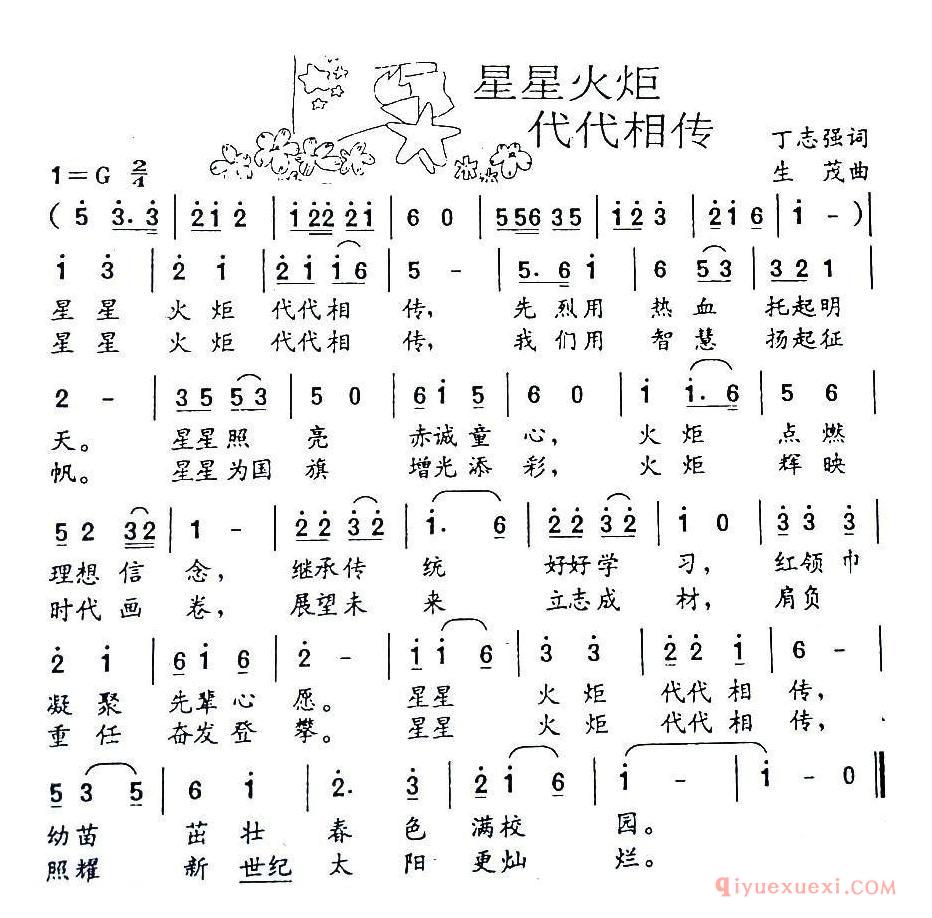 星星火炬
代代相传
丁志强词
1=G 2/4
生 茂曲
( 5 3. 3 | 2 1 2 | 1 2 2 2 1 | 6 0 | 5 5 6 3 5 | 1 2 3 | 2 1 6 | 1 - ) |
1 3 | 2 1 | 2 1 1 6 | 5 - | 5. 6 1 | 6 5 3 | 3 2 1 |
星 星 火 炬 代代相 传, 先 烈用 热 血 托起明
星 星 火 炬 代代相 传, 我 们用 智 慧 扬起征
2 - | 3 5 5 3 | 5 0 | 6 1 5 | 6 0 | 1 1. 6 | 5 8 |
天。 星星照 亮 赤诚童 心, 火 炬 点 燃
帆。 星星为国 旗 增光添 彩, 火 炬 辉 映
5 2 3 2 | 1 - | 2 2 3 2 | 1. 6 | 2 2 3 2 | 1 0 | 3 3 3 |
理想信 念, 继承传 统 好好学 习, 红领巾
时代画 卷, 展望未 来 立志成 材, 肩负
2 1 | 6 1 6 | 2 - | 1 1 6 | 3 3 | 2 2 1 | 6 - |
凝 聚 先辈心 愿。 星星 火 炬 代代相 传,
重 任 奋发登 攀。 星星 火 炬 代代相 传,
5 3 5 | 6 1 | 2. 3 | 2 1 6 | 1 - | 1 0 ‖
幼苗 茁 壮 春 色 满校 园。
照耀 新 世纪 太 阳 更灿 烂。
qiyuexuexi.com